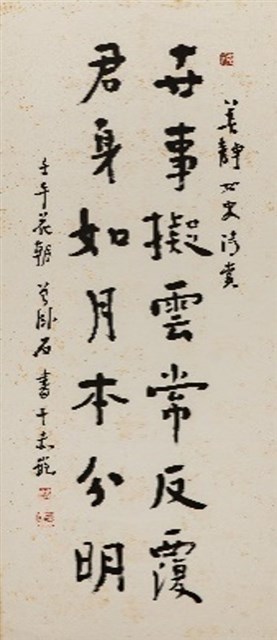 美靜女史清賞
世事擬雲常反覆
君身如月本分明
壬午花朝曾臥石書于未龕